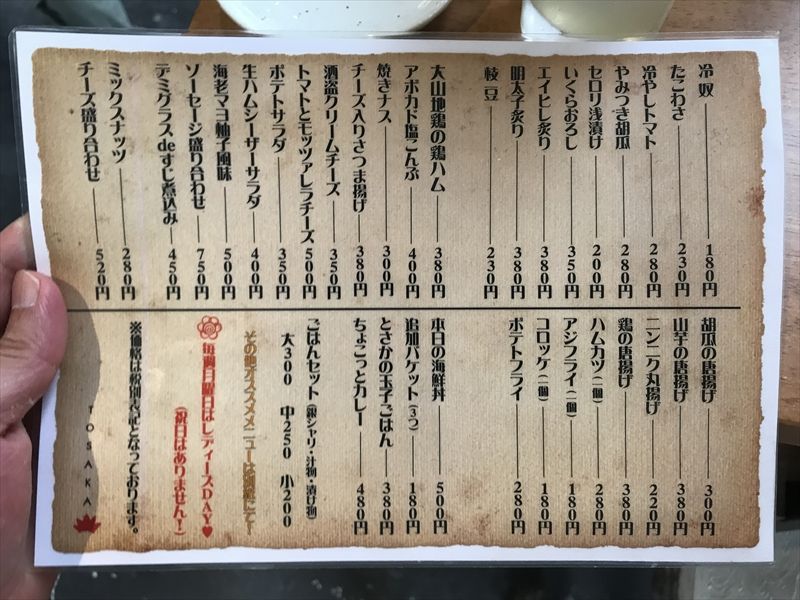 冷奴 180円
たこわさ 230円
冷やしトマト 280円
やみつき胡瓜 280円
セロリ浅漬け 200円
いくらおろし 350円
エイヒレ炙り 380円
明太子炙り 380円
枝豆 230円
大山地鶏の鶏ハム 380円
アボカド塩こんぶ 400円
焼きナス 300円
チーズ入りさつま揚げ 380円
酒盗クリームチーズ 350円
トマトとモッツァレラチーズ 500円
ポテトサラダ 350円
生ハムシーザーサラダ 400円
海老マヨ柚子風味 500円
ソーセージ盛り合わせ 750円
デミグラスdeすじ煮込み 450円
ミックスナッツ 280円
チーズ盛り合わせ 520円
胡瓜の唐揚げ 300円
山芋の唐揚げ 380円
ニンニク丸揚げ 220円
鶏の唐揚げ 380円
ハムカツ(二個) 280円
アジフライ(一個) 180円
コロッケ(一個) 180円
ポテトフライ 280円
本日の海鮮丼 500円
追加バケット(3つ) 180円
とさかの玉子ごはん 380円
ちょこっとカレー 480円
ごはんセット(銀シャリ・汁物・漬け物)
大300 中250 小200
その他オススメメニューは別紙にて!
毎週日曜日はレディースDAY♥
(祝日はありません!)
※価格は税別表記となっております。
TOSAKA